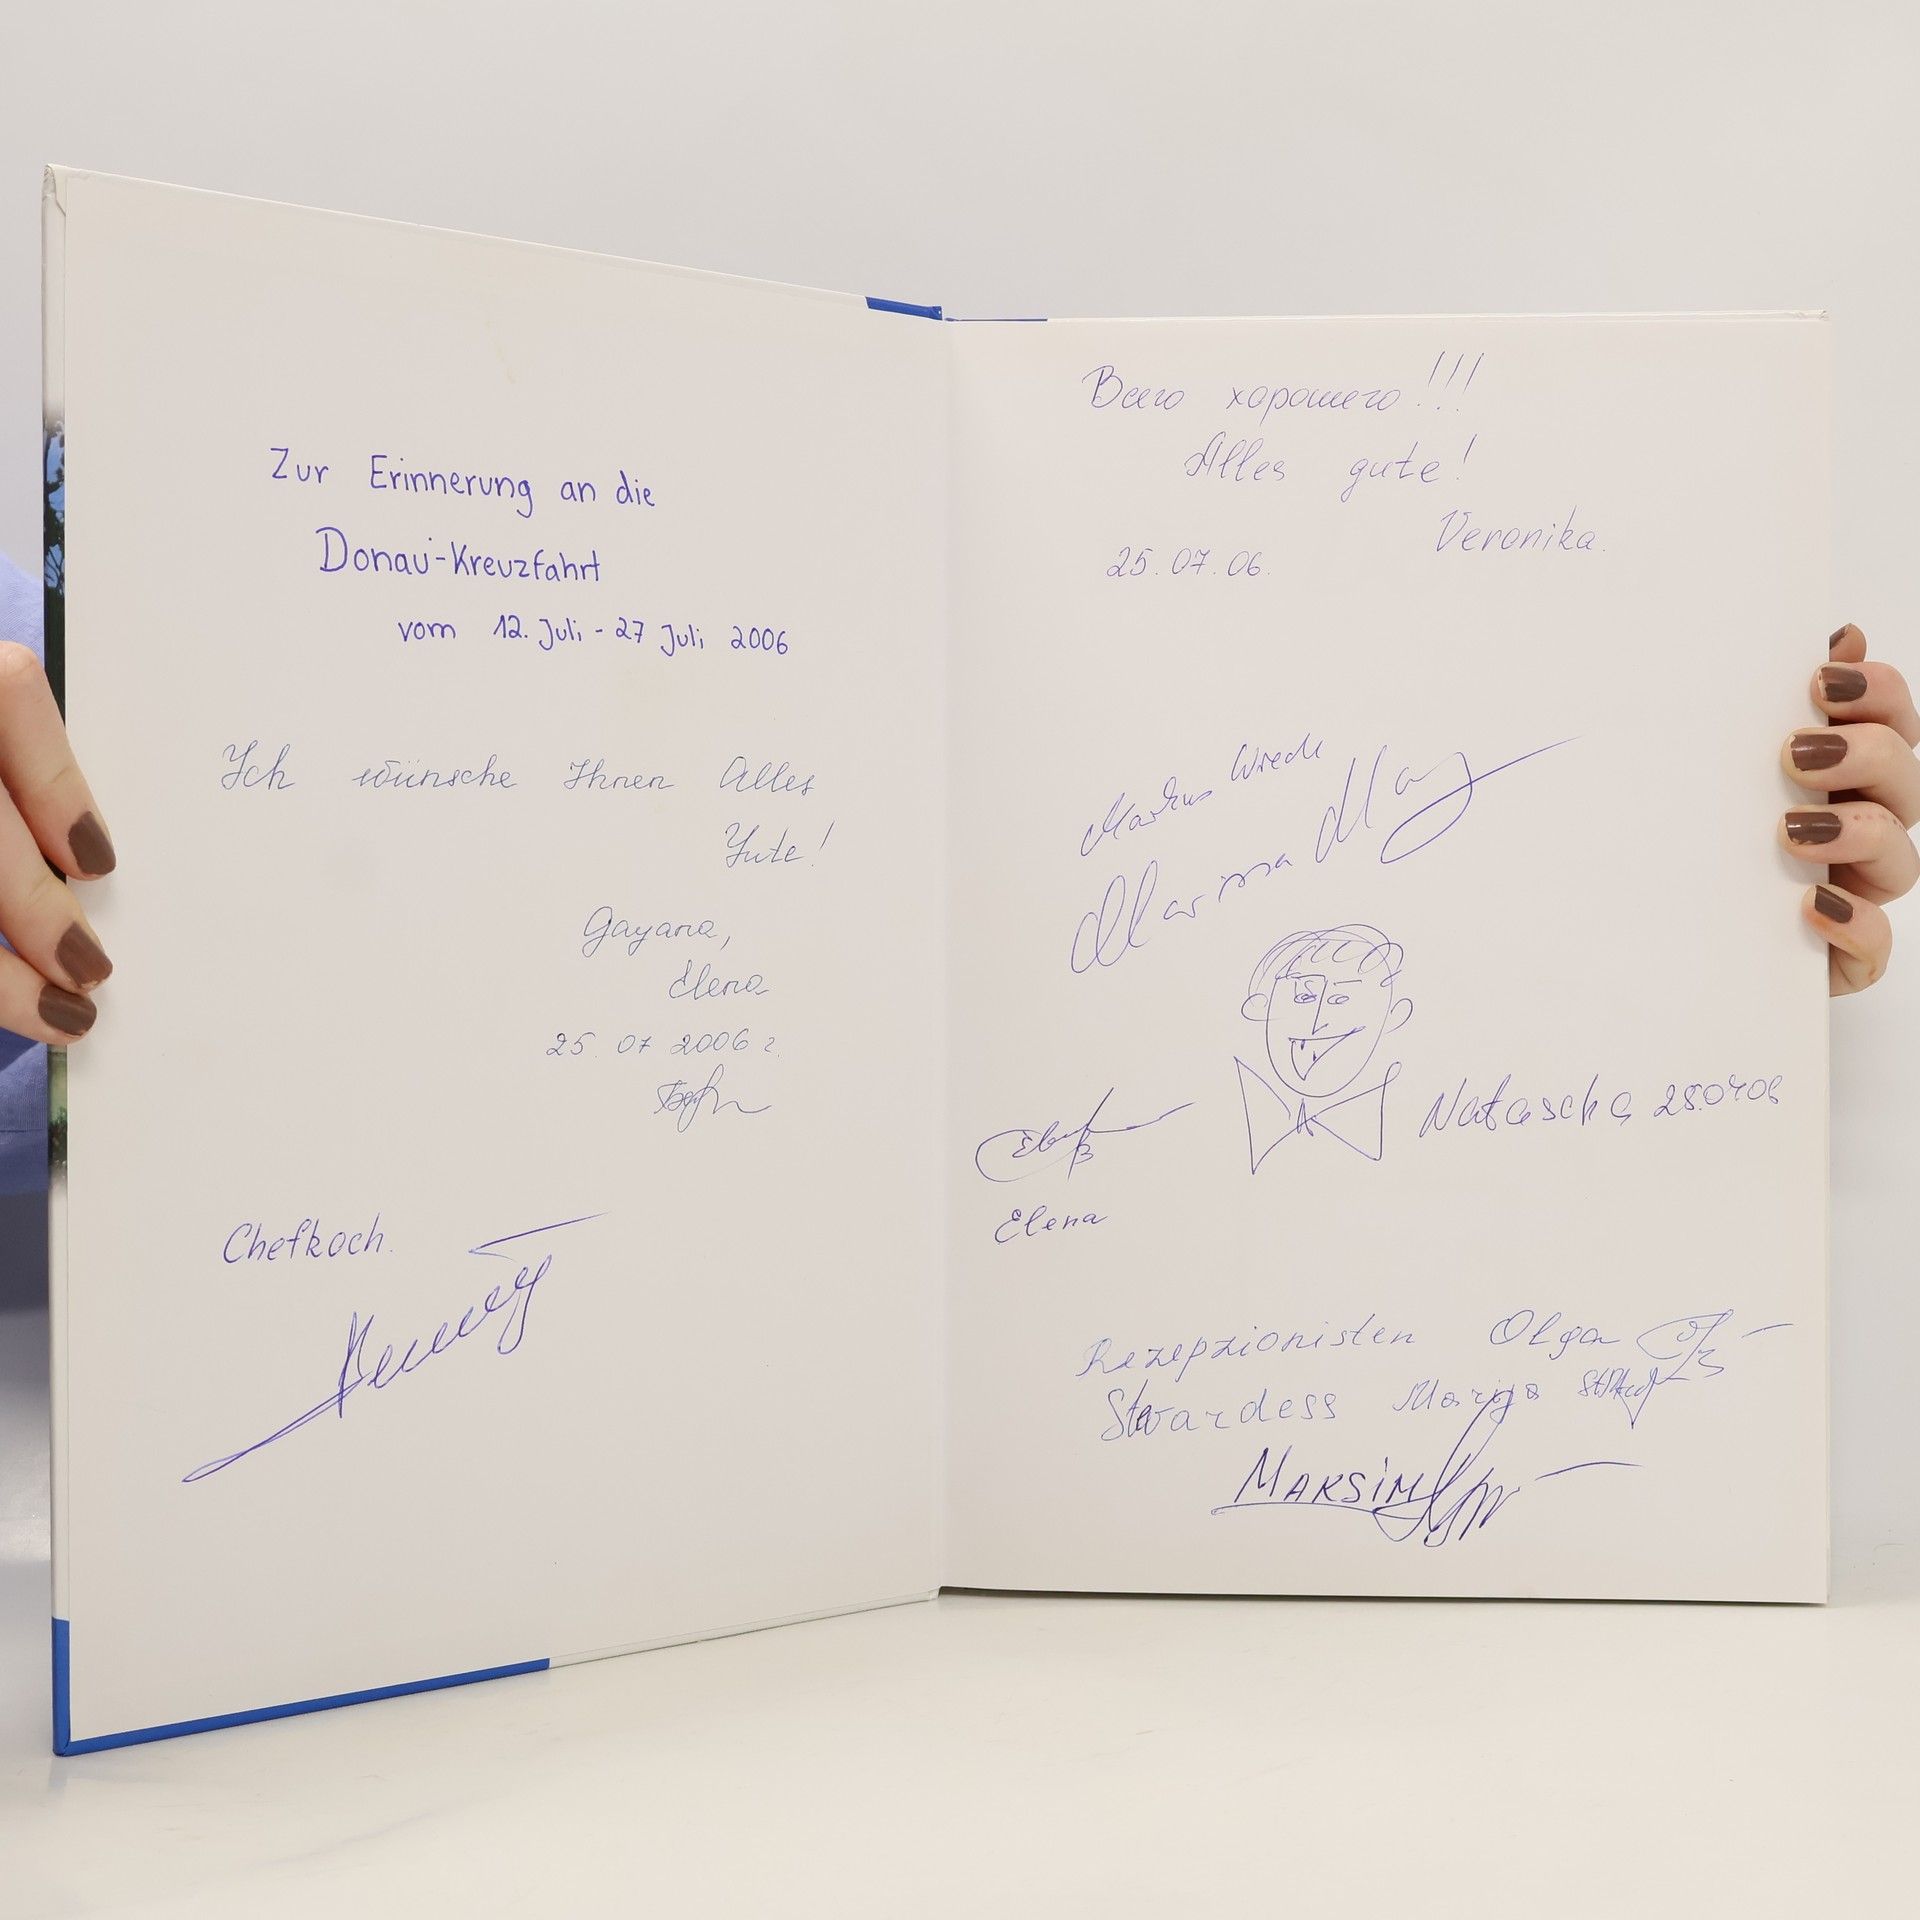 Zur Erinnerung an die
Donau-Kreuzfahrt
vom 12. Juli - 27 Juli 2006
Ich wünsche Ihnen Alles
Gute!
Gayana,
Elena
25 07 2006 г.
Chefkoch.
Всего хорошего!!!
Alles gute!
Veronika.
25.07.06.
Markus
Marina
Natascha 25.07.06
Elena
Rezepzionisten Olga
Stewardess Marija
MAKSIM